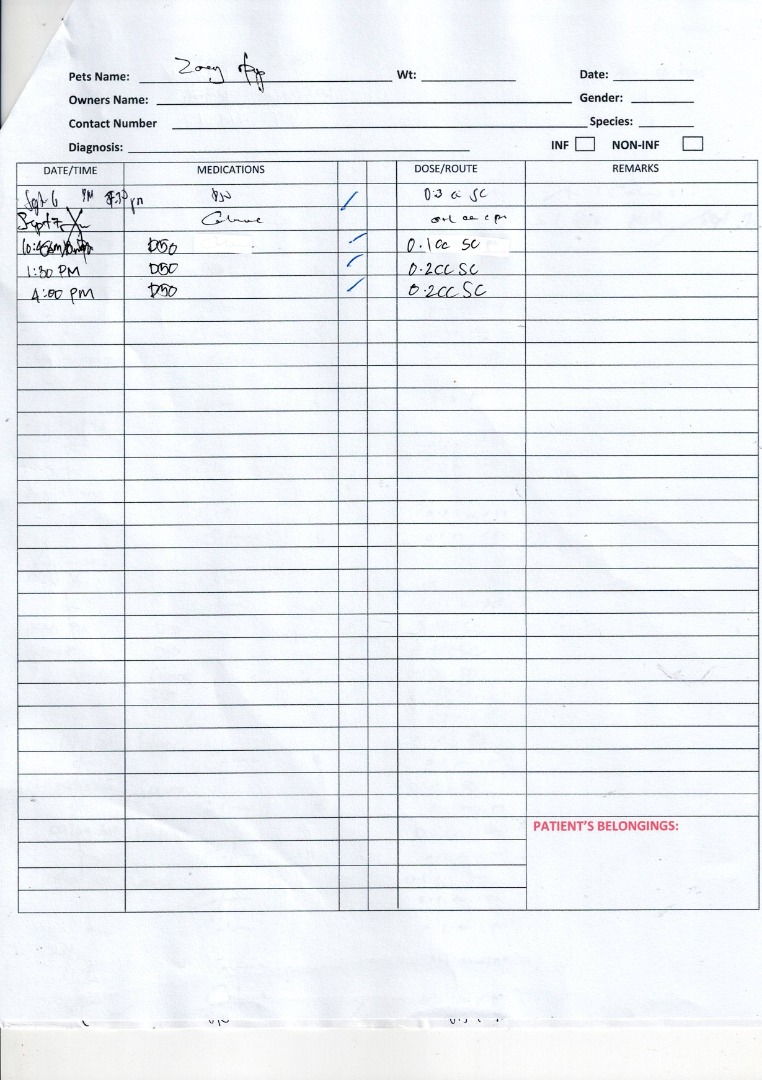 Pets Name: Zoey Wt: Date:
Owners Name: Gender:
Contact Number Species:
Diagnosis: INF NON-INF
DATE/TIME MEDICATIONS DOSE/ROUTE REMARKS
Sept 6 PM 0.3 cc SC
Sept 7
D50 0.1cc SC
1:30 PM D50 0.2cc SC
4:00 PM D50 0.2cc SC
PATIENT'S BELONGINGS: